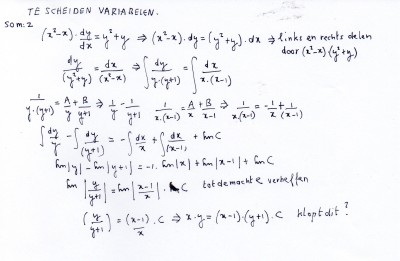 TE SCHEIDEN VARIABELEN.
SOM: 2
(x²-x)·dy/dx = y²+y ⇒ (x²-x)·dy = (y²+y)·dx ⇒ links en rechts delen
door (x²-x)(y²+y)
dy/(y²+y) = dx/(x²-x) ⇒ ∫ dy/y·(y+1) = ∫ dx/x·(x-1)
1/y·(y+1) = A/y + B/y+1 ⇒ 1/y - 1/y+1 1/x·(x-1) = A/x + B/x-1 ⇒ 1/x·(x-1) = -1/x + 1/(x-1)
∫ dy/y - ∫ dy/(y+1) = -∫ dx/x + ∫ dx/(x-1) + ln C
ln|y| - ln|y+1| = -1·ln|x| + ln|x-1| + ln C
ln|y/y+1| = ln|x-1/x|· C tot de macht e verheffen
(y/y+1) = (x-1)/x · C ⇒ x·y = (x-1)·(y+1)·C klopt dit?